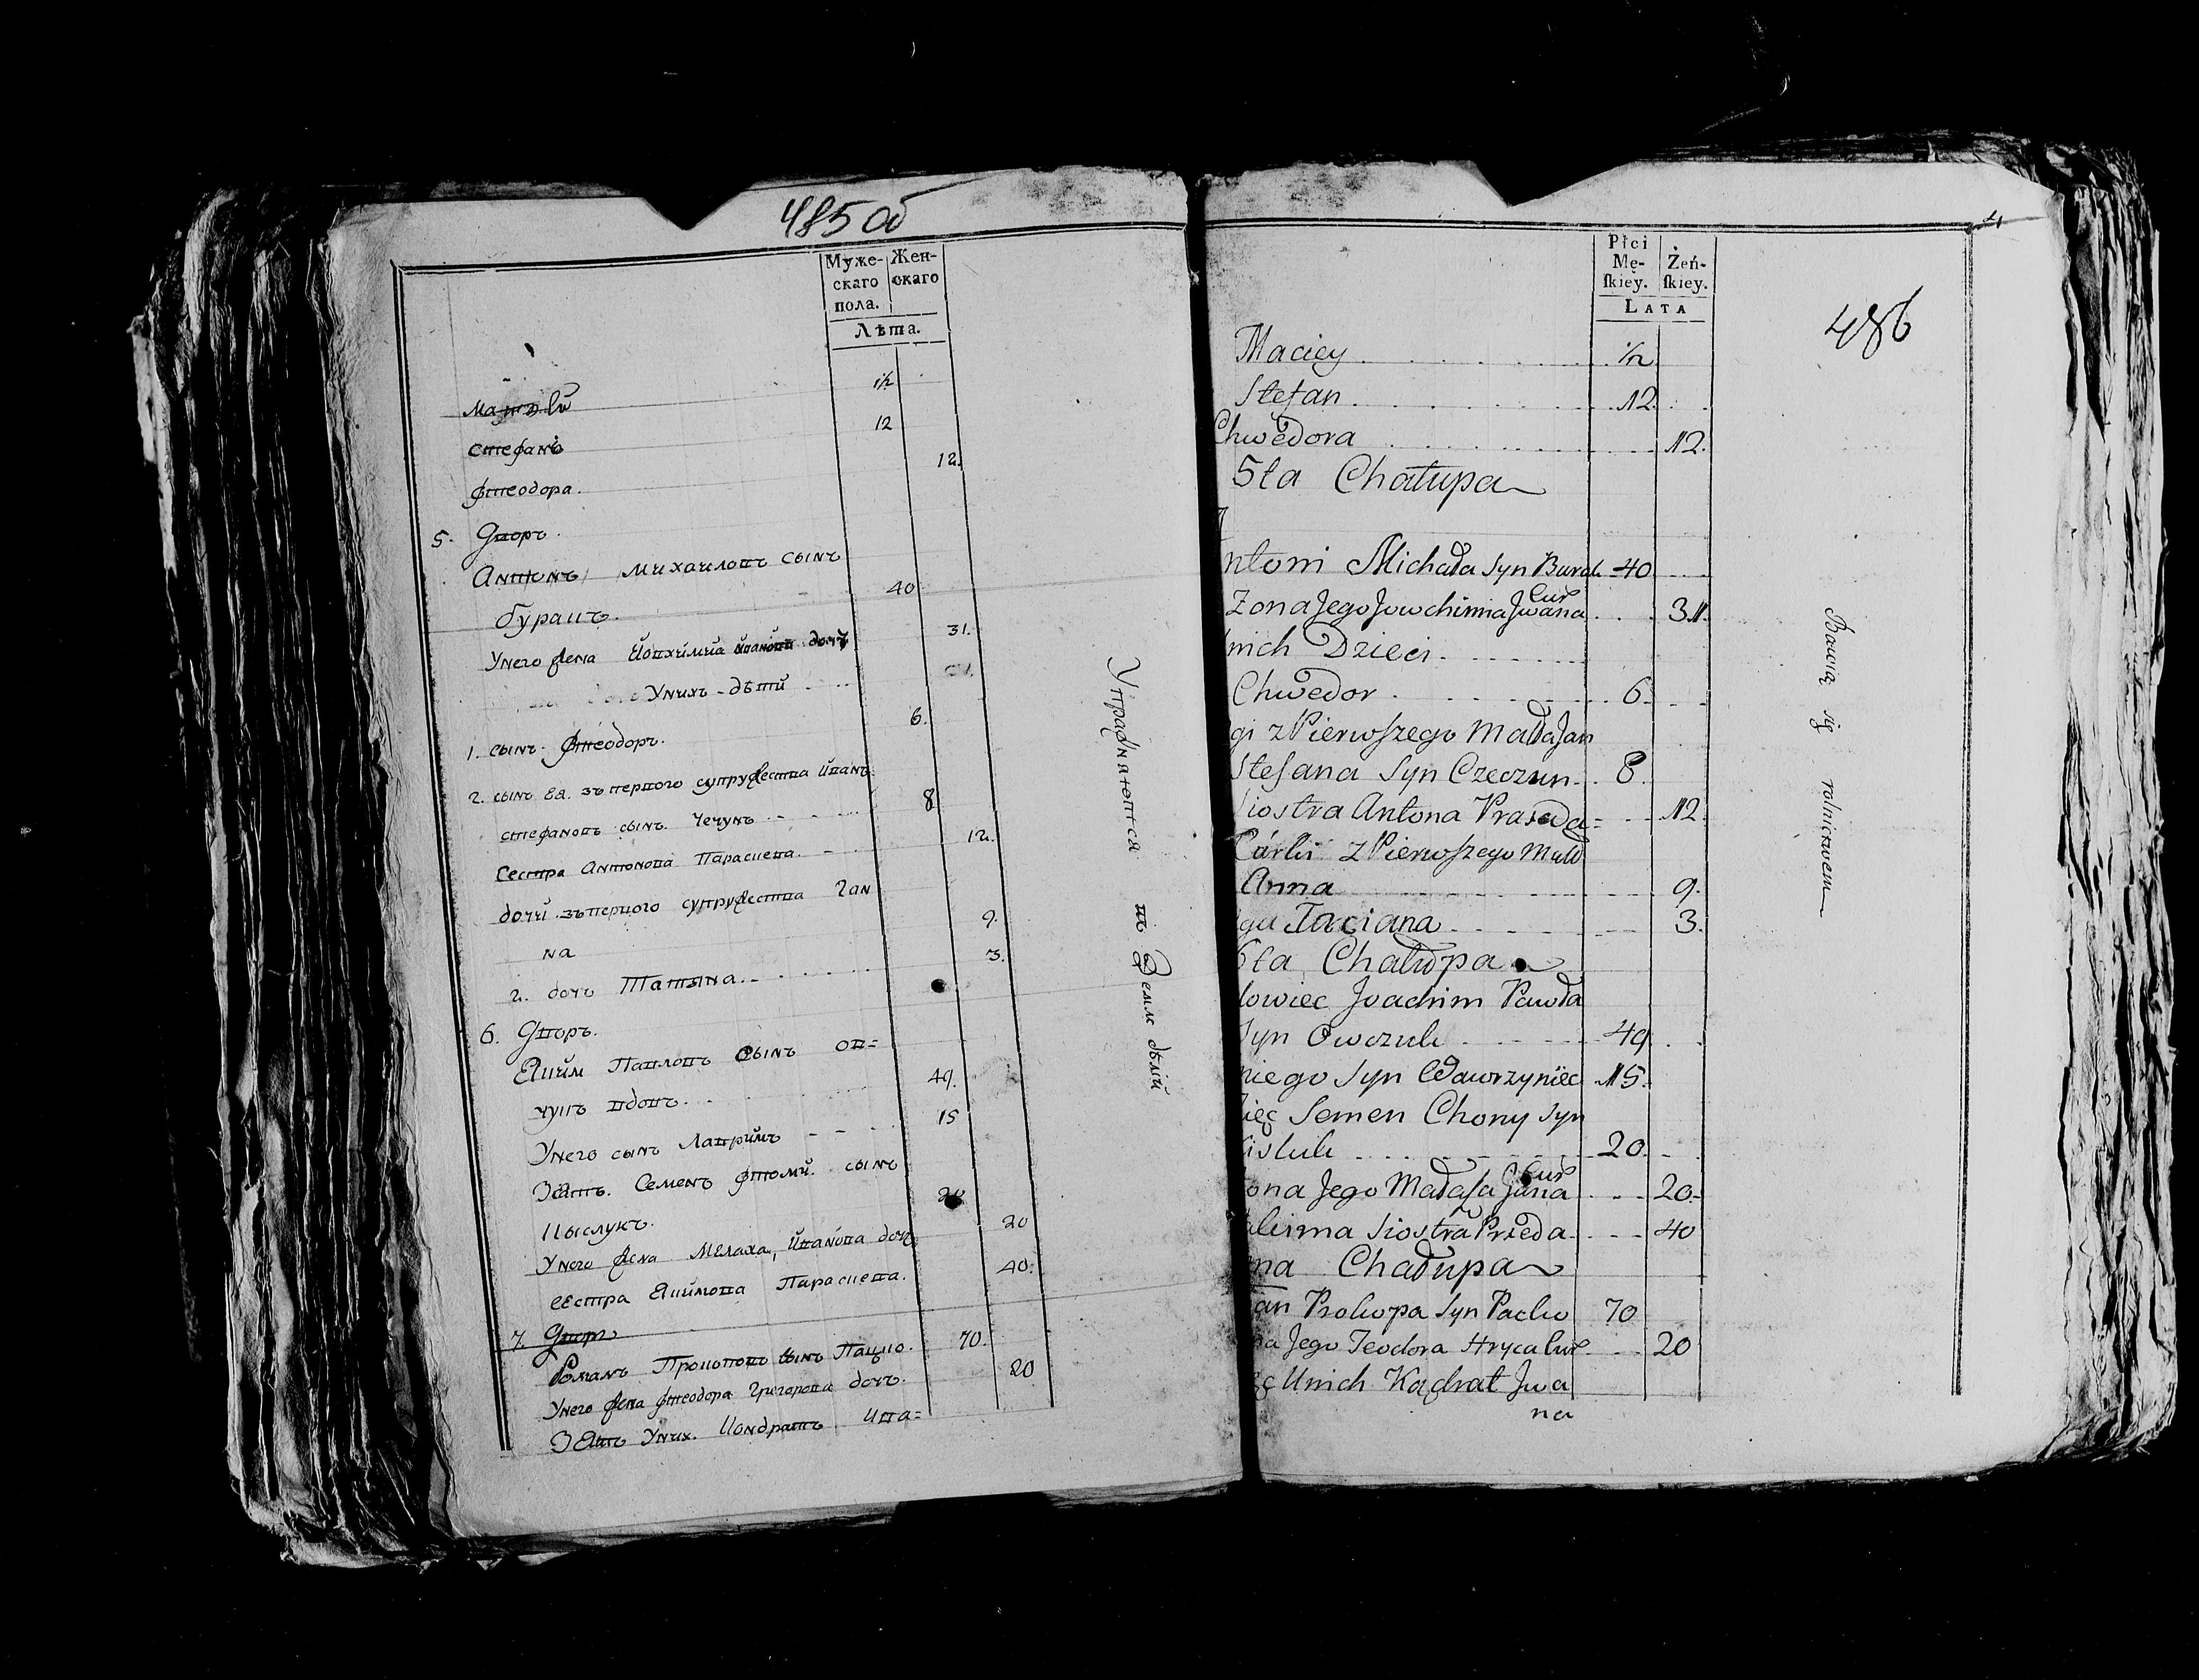 485 об
Муже-
скаго
пола.
Жен-
скаго
Лѣта.
Матвѣй 1/2
Стефанъ 12
Фтеодора. 12.
5. Дворъ.
Антонъ Михаиловъ сынъ
буракъ. 40
У него жена Йовхимия Иванова дочь 31.
У нихъ дѣти
1. сынъ Фтеодоръ. 6.
2. сынъ ея зъ первого супружества Иванъ
Стефановъ сынъ Чечунъ 8
Сестра Антонова Параскева. 12.
дочи зъ первого супружества Ган
на 9.
2. дочь Татяна. 3.
6. Дворъ.
Якимъ Павловъ сынъ ов=
чукъ вдовъ. 49.
У него сынъ Лавринъ 15
Зять Семенъ Фтоми сынъ
Кыслукъ. 20
У него жена Мелаха Иванова дочь 20
сестра Якимова Параскева. 40.
7. Дворъ
Романъ Прокоповъ сынъ Пацко. 70.
У него жена Фтеодора Григорова дочь. 20
Зять У них. Кондратъ Ива=
Упражняются въ Земледѣлій
4
486
Płci
Mę-
ſkiey.
Żeń-
ſkiey.
LATA
Maciey 1/2
Stefan 12.
Chwedora 12.
5ta Chałupa
ntoni Michała Syn Burak 40
Zona Jego Jowchimia Jwana Cur 31.
nich Dzieci
Chwedor 6.
gi z Pierwſzego Mał Jan
Stefana Syn Czeczun 8.
Siostra Antona Praxeda 12.
Córki z Pierwſzego Małż
Anna 9.
ga Taciana 3.
6ta Chałupa
dowiec Joachim Pawła
Syn Owczuk 49
niego Syn Wawrzyniec 15.
ięć Semen Chomy Syn
Kisluk 20.
ona Jego Małaſa Jana Cur 20.
akima Siostra Prxeda 40
ma Chałupa
an Prokopa Syn Packo 70
na Jego Teodora Hryca Cur 20
ęć Unich Kądrat Jwa
na
Bawią się rolnictwem